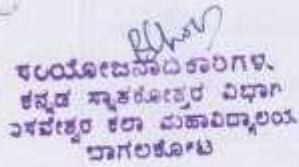 ಸಂಯೋಜನಾಧಿಕಾರಿಗಳು,
ಕನ್ನಡ ಸ್ನಾತಕೋತ್ತರ ವಿಭಾಗ
ಬಸವೇಶ್ವರ ಕಲಾ ಮಹಾವಿದ್ಯಾಲಯ
ಬಾಗಲಕೋಟ